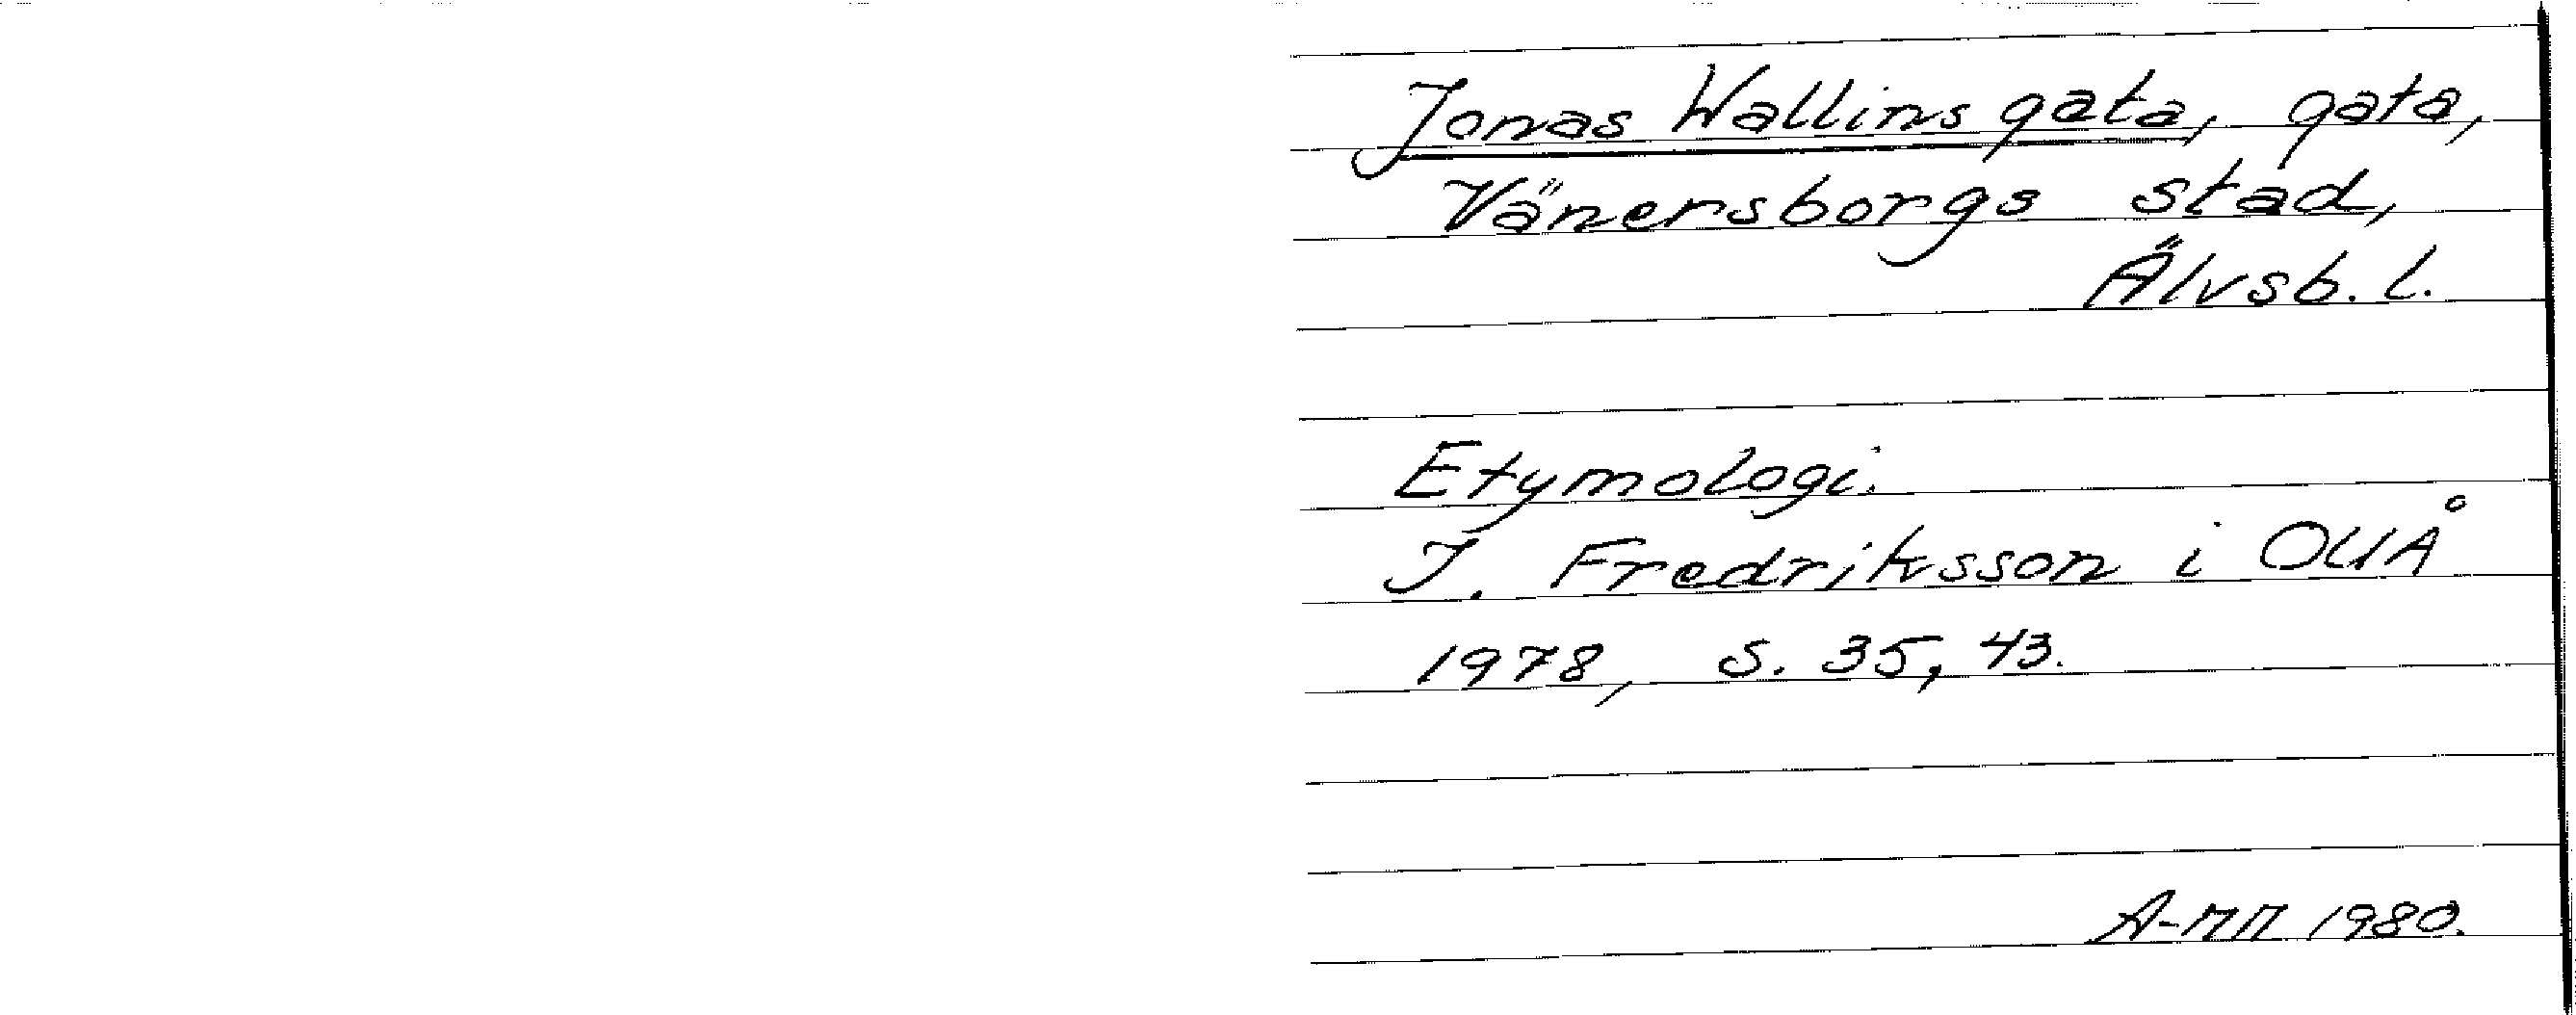 Jonas Wallins gata, gata,
Vänersborgs stad,
Älvsb. l.
Etymologi.
J. Fredriksson i OUÅ
1978, s. 35, 43.
A-MM 1980.